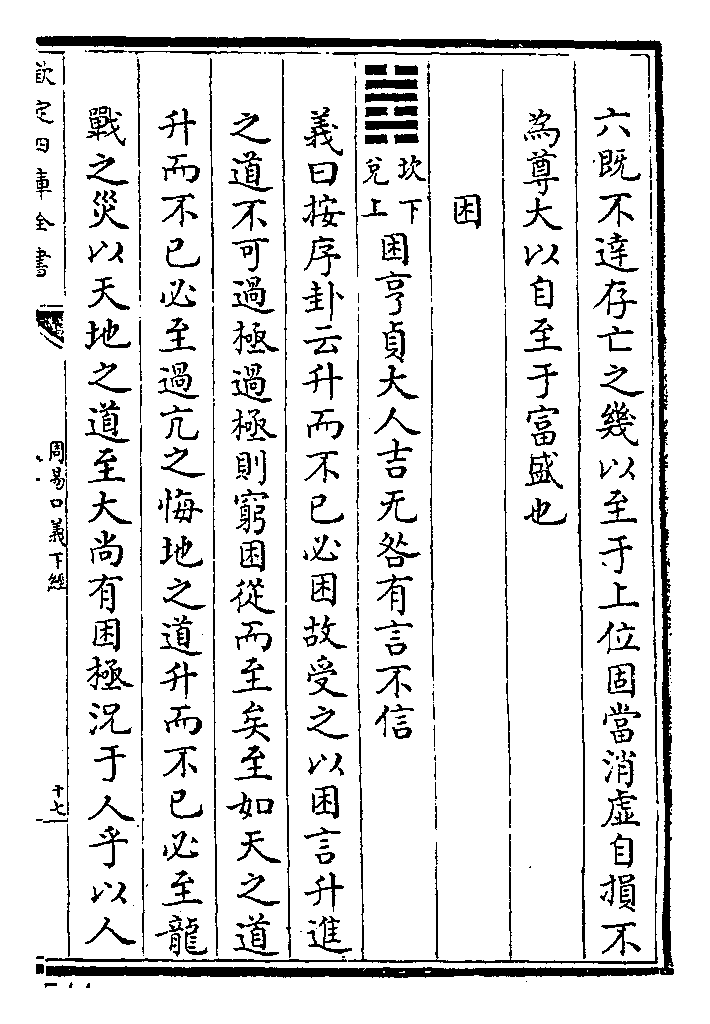 六既不達存亡之幾以至于上位固當消虛自損不
為尊大以自至于富盛也
困
坎下
兌上
困亨貞大人吉无咎有言不信
義曰按序卦云升而不已必困故受之以困言升進
之道不可過極過極則窮困從而至矣至如天之道
升而不已必至過亢之悔地之道升而不已必至龍
戰之災以天地之道至大尚有困極況于人乎以人
欽定四庫全書
周易口義下經
十七